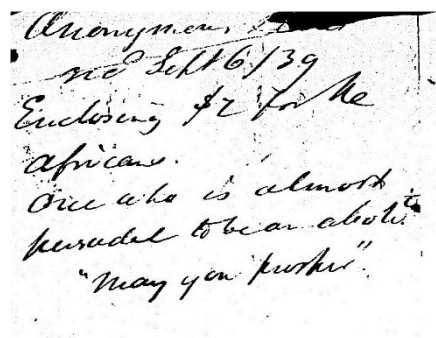 Anonymous
rec Sept 6/39
Enclosing $2 for the
africans.
One who is almost
persuaded to be an aboli.
"May you prosper".